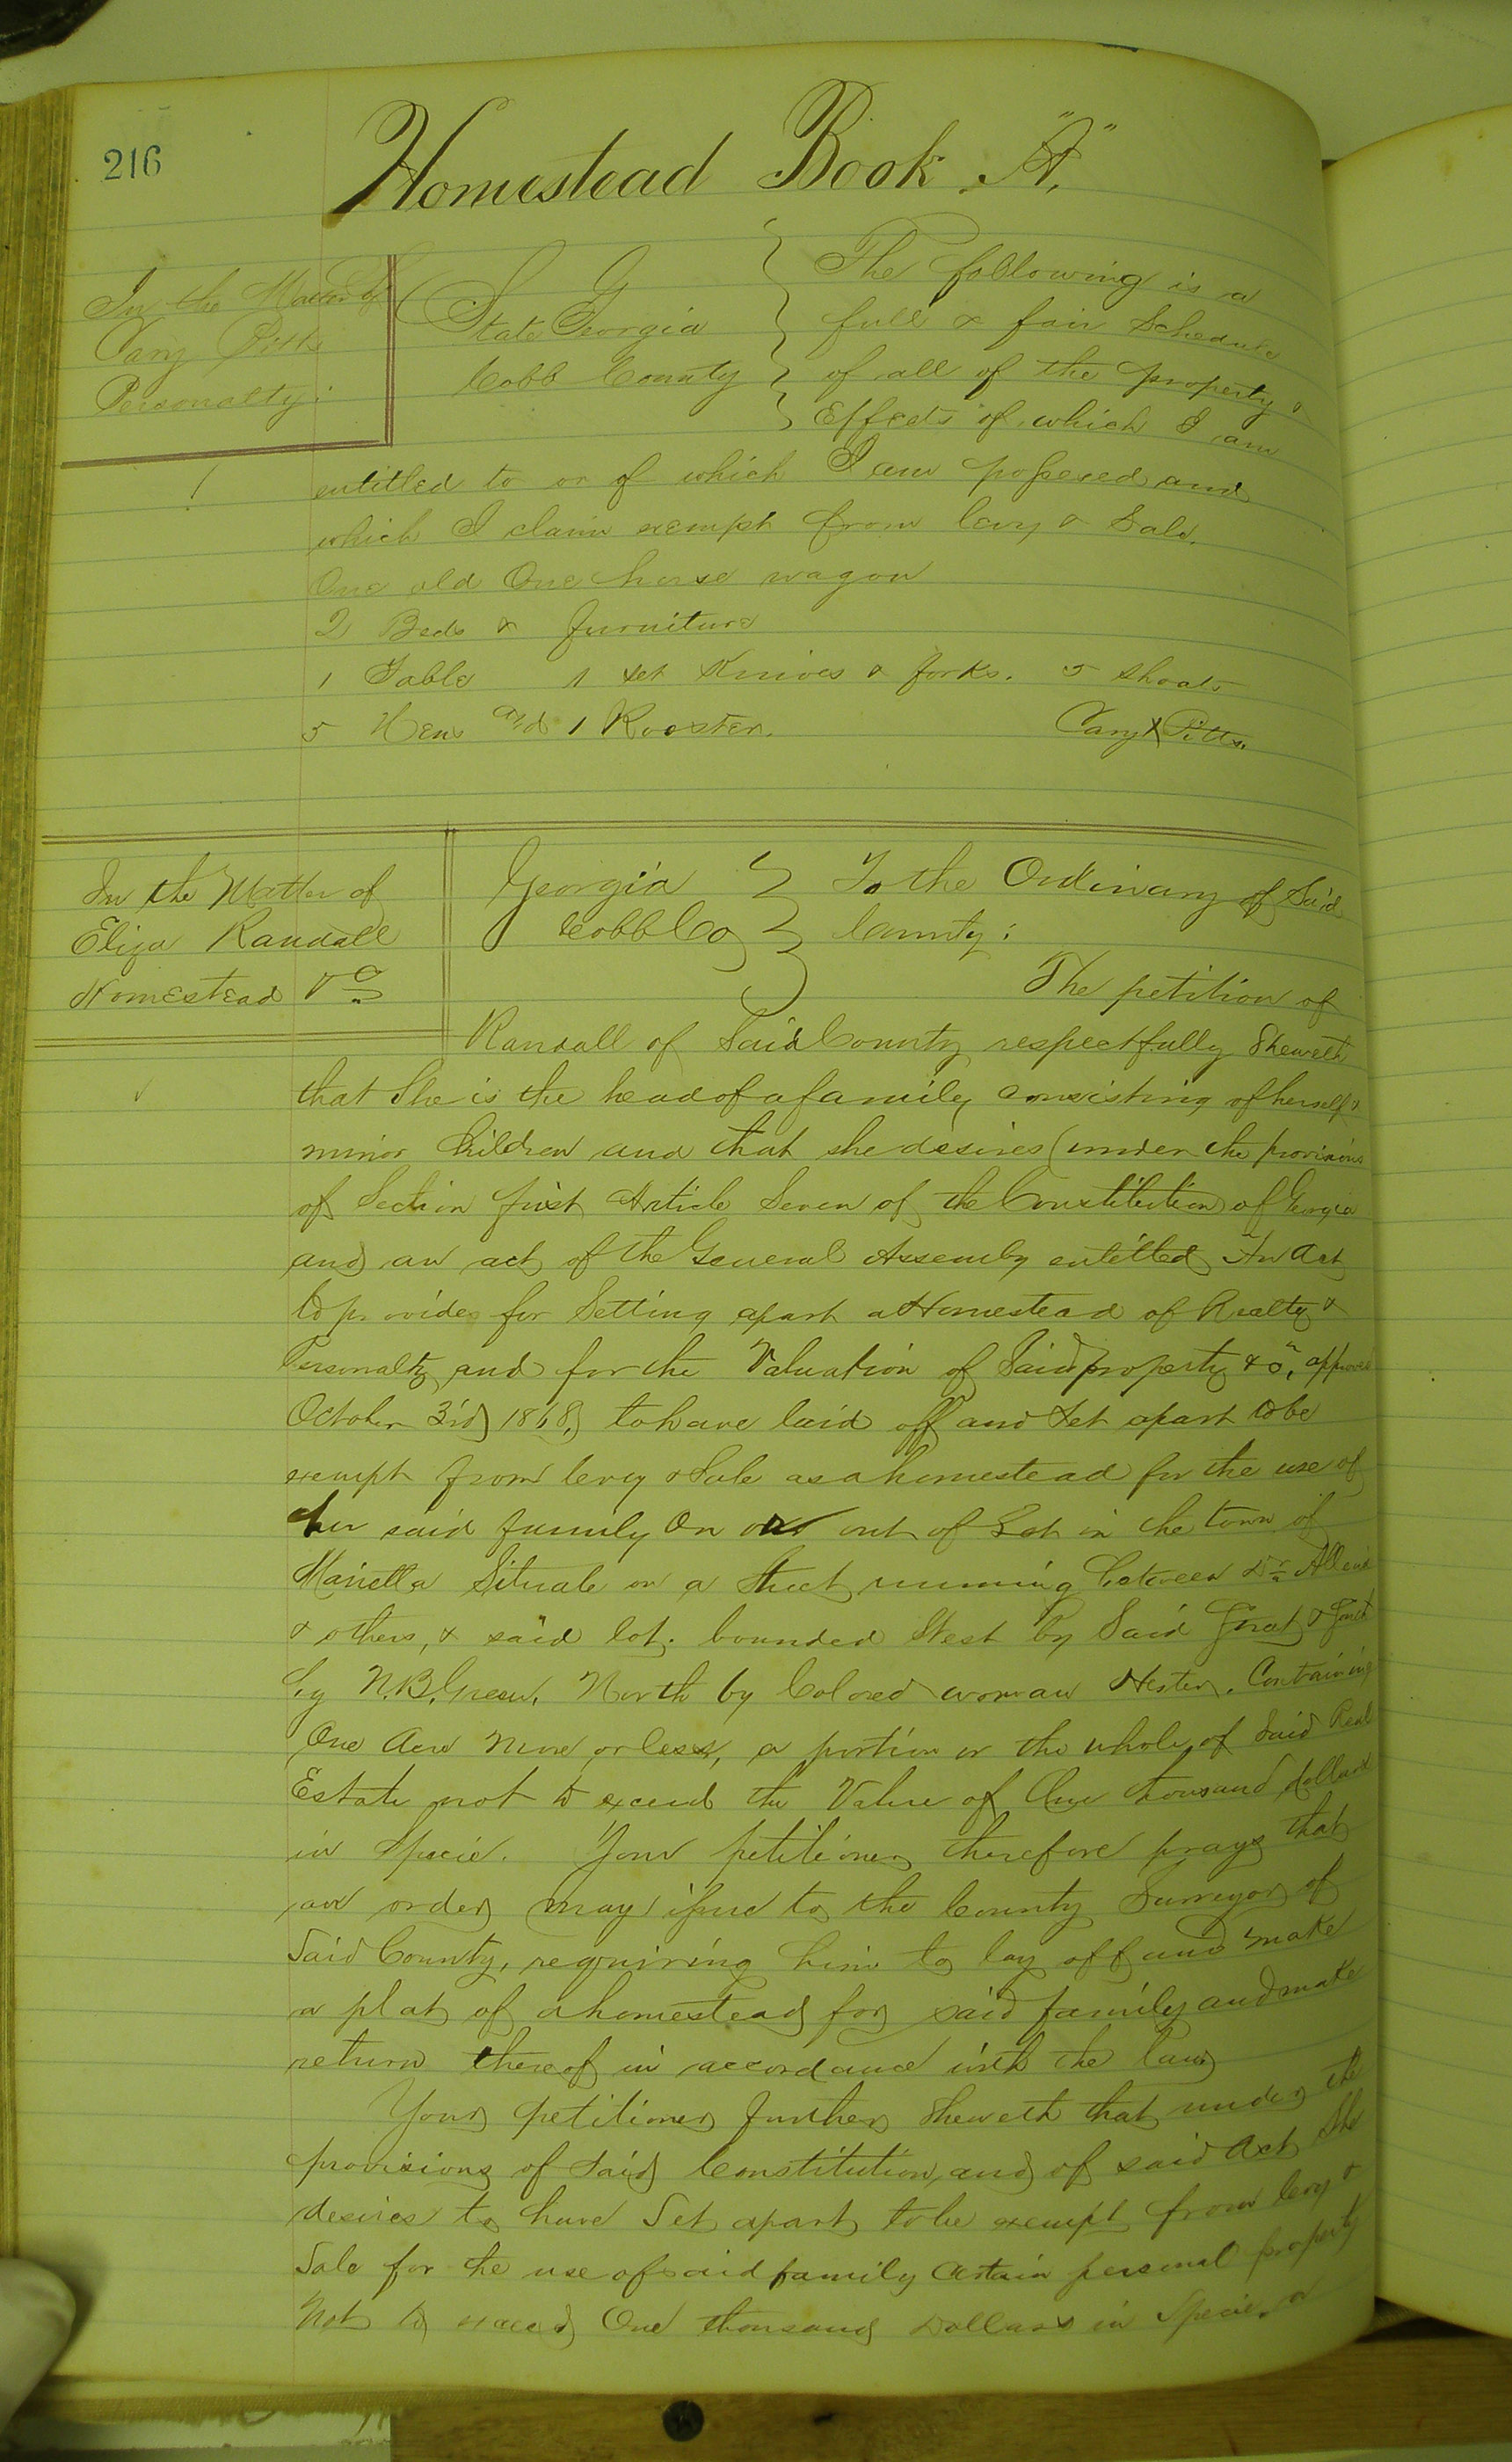 216
Homestead Book "A".
In the Matter of
Cary Pitts
Personalty:
State Georgia
Cobb County
The following is a
full & fair Schedule
of all of the property &
Effects of which I am
entitled to or of which I am possesed and
which I claim exempt from levy & Sale.
One old One horse wagon
2 Beds & furniture
1 Table 1 set Knives & forks. 5 shoats
5 Hens and 1 Rooster.
Cary X Pitts.
In the Matter of
Eliza Randall
Homestead &c
Georgia
Cobb Co
To the Ordinary of Said
County:
The petition of
Randall of Said County respectfully Sheweth
that She is the head of a family consisting of herself &
minor children and that she desires (under the provisions
of Section first Article Seven of the Constitution of Georgia
and an act of the General Assembly entitled An Act
to provide for Setting apart a Homestead of Realty &
Personalty and for the Valuation of Said property &c, approved
October 3rd 1868) to have laid off and Set apart to be
exempt from levy & Sale as a homestead for the use of
her said family On out of Lot in the town of
Marietta Situate on a Street running between Dr Allen's
& others, & said lot. bounded West by Said Street &
by N.B. Green, North by Colored woman Hester. Containing
One Acre More or less, a portion or the whole of Said Real
Estate not to exceed the Value of One thousand dollars
in Specie. Your petitioner therefore prays that
an order may issue to the County Surveyor of
Said County, requiring him to lay off and make
a plat of a homestead for said family and make
return thereof in accordance with the law
Your petitioner further Sheweth that under the
provisions of Said Constitution, and of said Act She
desires to have Set apart to be exempt from levy &
Sale for the use of said family Certain personal property
Not to exceed One thousand Dollars in Specie, a